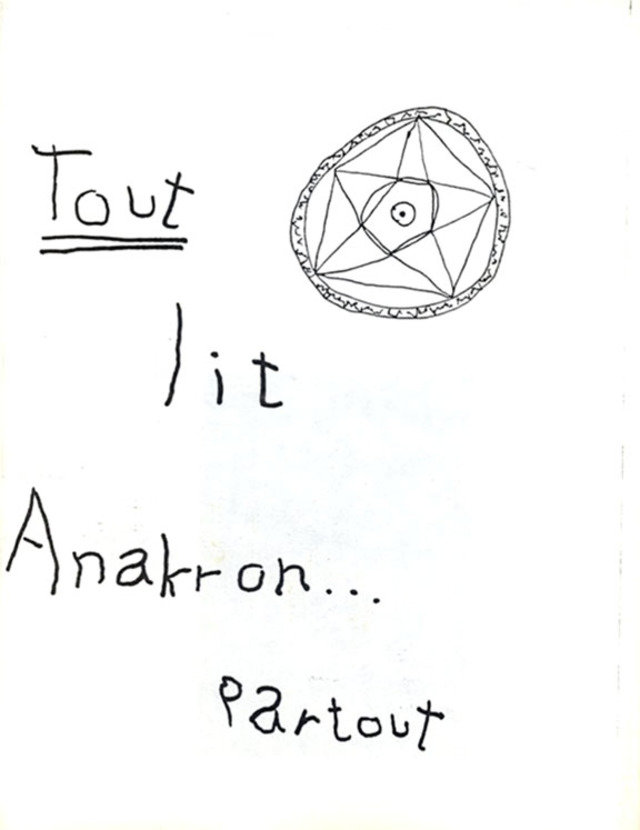 Tout
lit
Anakron...
Partout